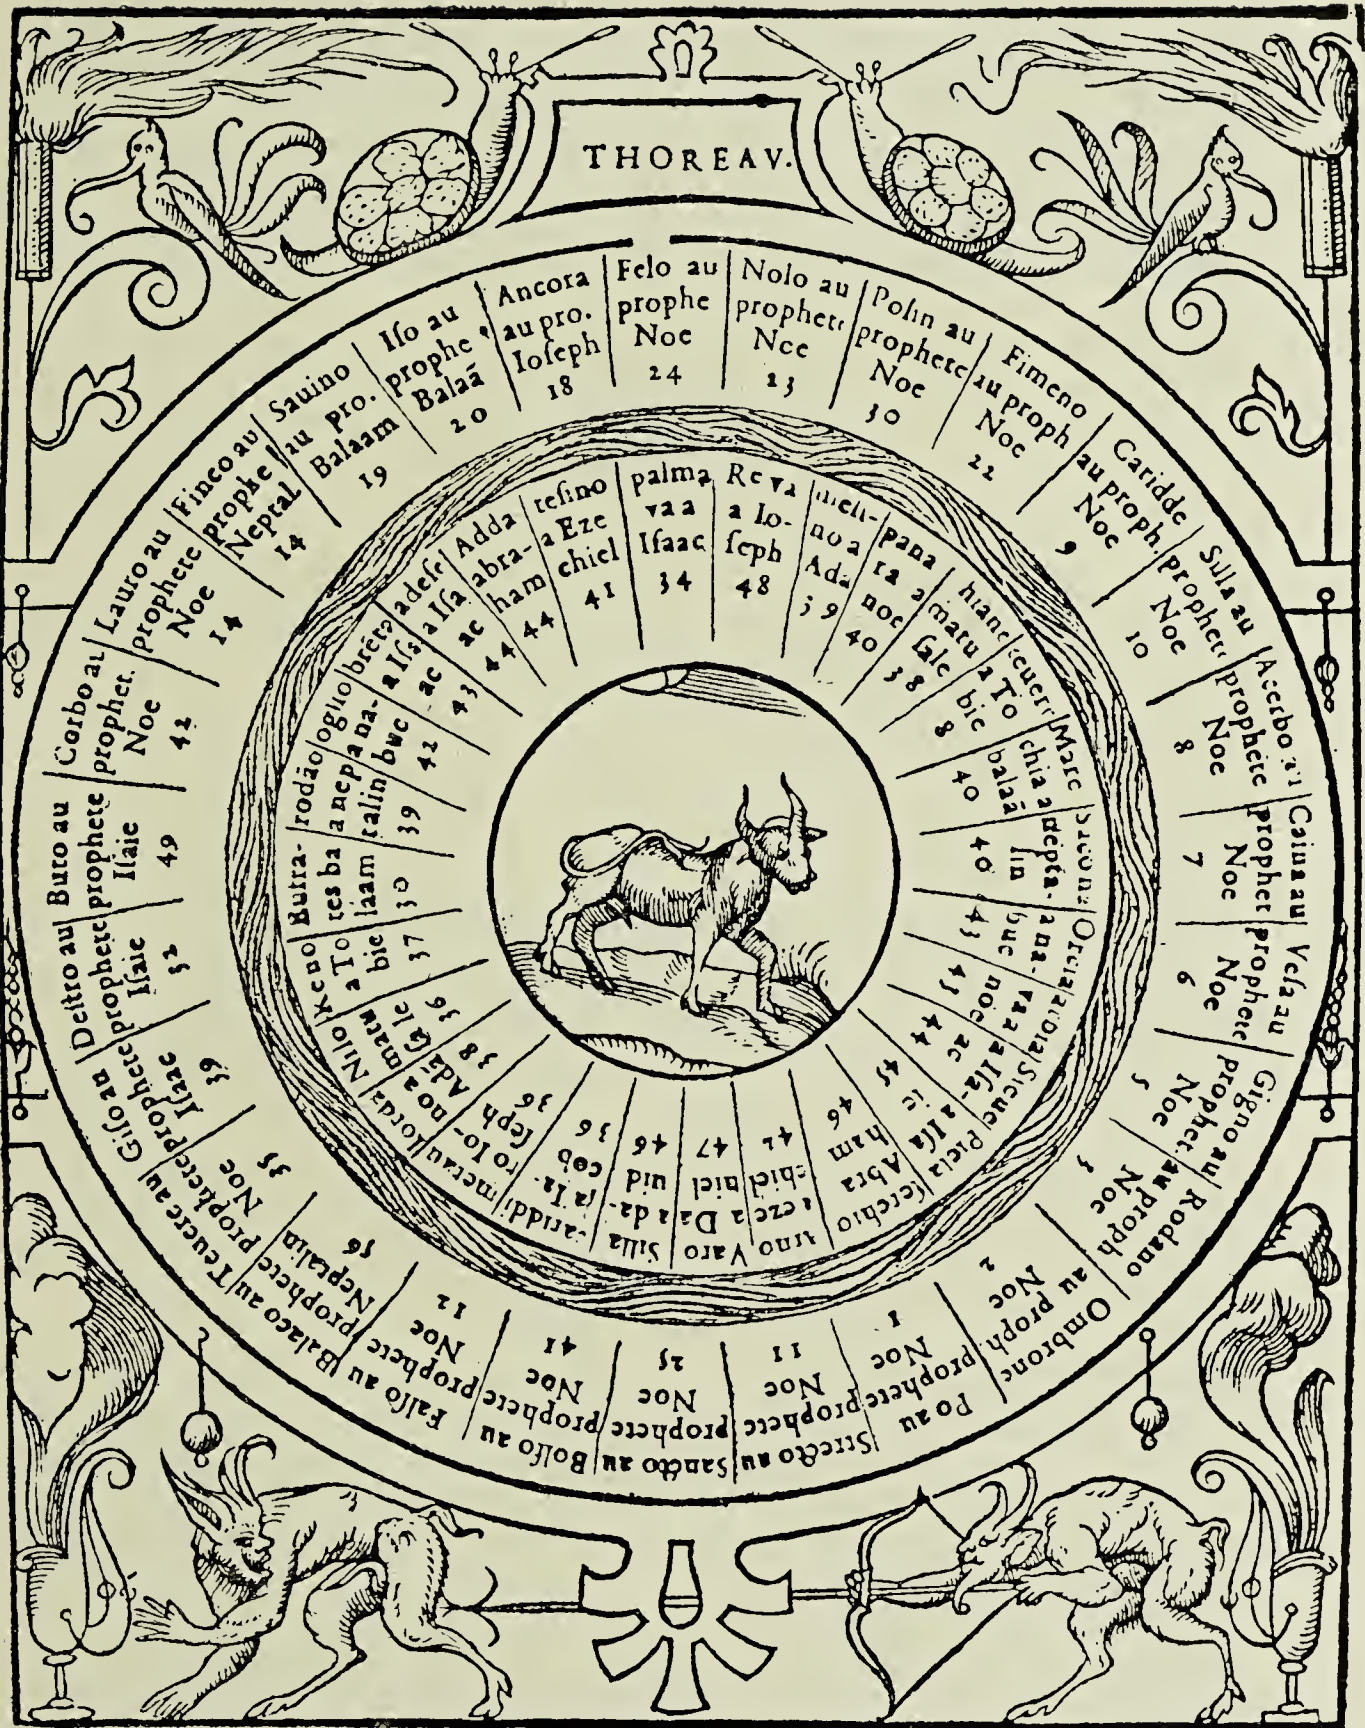 THOREAV.
Felo au
prophe
Noe
24
Nolo au
prophete
Nce
23
Polin au
prophete
Noe
30
Fimeno
au proph
Noe
22
Caridde
au proph.
Noe
9
Silla au
prophete
Noe
10
Acerbo au
prophete
Noe
8
Caina au
prophet
Noe
7
Vesa au
prophete
Noe
6
Gigno au
prophet.
Noe
5
Rodano
au proph
Noe
3
Ombrone
au
proph
Noe
2
Po au
prophete
Noe
1
Stretto au
prophete
Noe
11
Sancto au
prophete
Noe
25
Bolſo au
prophete
Noe
41
Falſo au
prophete
Noe
12
Balaco au
prophete
Neptalin
56
Teuere au
prophete
Noe
35
Giſo au
prophete
Iſaac
39
Deitro au
prophete
Iſaie
32
Buro au
prophete
Iſaie
49
Corbo au
prophet.
Noe
42
Lauro au
prophete
Noe
14
Finco au
prophe
Neptal
14
Sauino
au pro.
Balaam
19
Iſo au
prophe
Balaā
20
Ancora
au pro.
Ioſeph
18
palma
va a
Iſaac
34
Re va
a Io-
ſeph
48
no a
Ada
39
pana
ra a
noe
40
hiane
matu
ſale
38
a To
bie
8
Marc
chia a
balaā
40
nepta-
lin
40
a na-
buc
43
va a
noe
43
Sieue
a Iſa-
ac
44
Pieia
a Iſa
ic
45
ſerchio
Abra
ham
46
a eze
chiel
42
Varo
a Da
niel
47
Silla
a da-
uid
46
a Ia-
cob
36
metau
ro Io-
ſeph
36
Iorda
no a
Adā
38
Nilo
a matu
ſale
36
Reno
a To
bie
37
Butra-
tes ba
laam
30
rodāo
a nep
talin
39
oglio
a na-
buc
42
brēta
a Iſs
ac
43
adeſe
a Iſa
ac
44
Adda
abra-
ham
44
teſino
a Eze
chiel
41